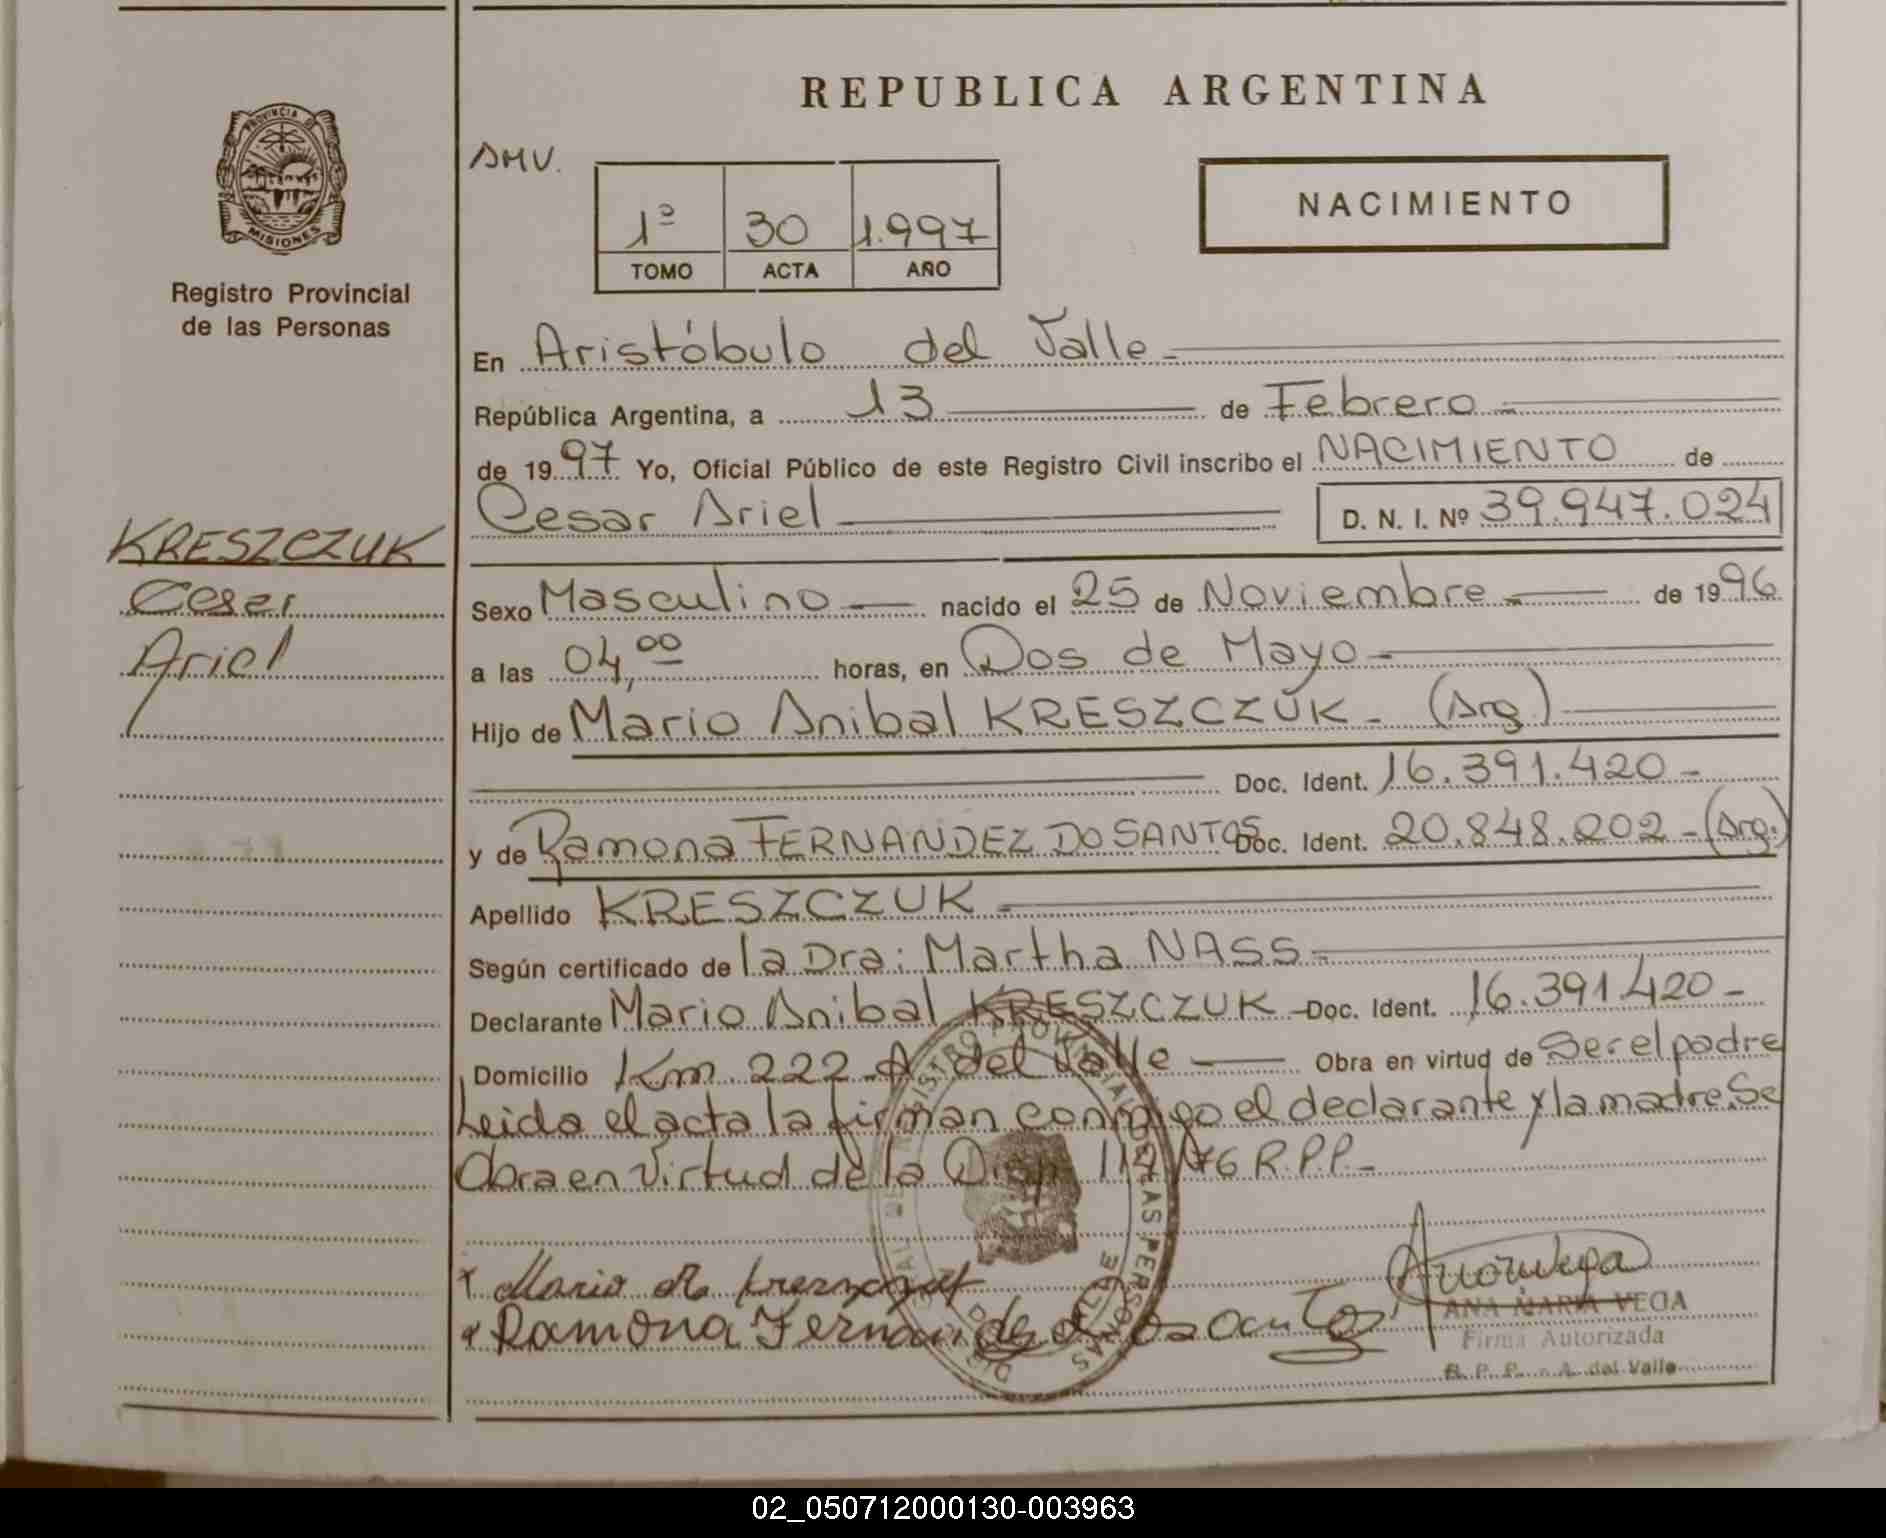 REPUBLICA ARGENTINA
PROVINCIA DE
MISIONES
Registro Provincial
de las Personas
AMV.
1º 30 1.997
TOMO ACTA AÑO
NACIMIENTO
En Aristóbulo del Valle
República Argentina, a 13 de Febrero
de 1997 Yo, Oficial Público de este Registro Civil inscribo el NACIMIENTO de
Cesar Ariel D. N. I. Nº 39.947.024
KRESZCZUK
Cesar
Ariel
Sexo Masculino nacido el 25 de Noviembre de 1996
a las 04,00 horas, en Dos de Mayo
Hijo de Mario Anibal KRESZCZUK - (Arg.)
Doc. Ident. 16.391.420 -
y de Ramona FERNANDEZ DO SANTOS Doc. Ident. 20.848.202 - (Arg.)
Apellido KRESZCZUK
Según certificado de la Dra: Martha NASS
Declarante Mario Anibal KRESZCZUK - Doc. Ident. 16.391.420 -
Domicilio Km 222 A. del Valle Obra en virtud de Ser el padre
Leida el acta la firman conmigo el declarante y la madre. Se
Obra en Virtud de la 76 R.P.P. -
x Mario A.
x Ramona Fernandez Do Santos
ANA MARIA VEGA
Firma Autorizada
R. P. P. - A. del Valle
02_050712000130-003963